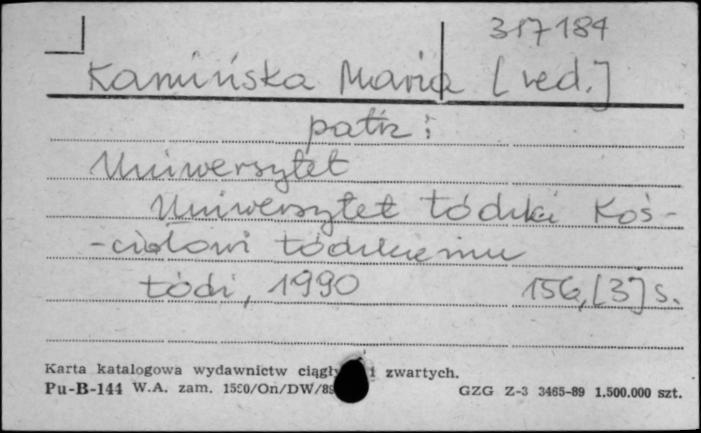 317184
Kamińska Maria [red.]
patrz:
Uniwersytet
Uniwersytet Łódzki Koś-
-ciołowi Łódzkiemu
Łódź, 1990 156,[3] s.
Karta katalogowa wydawnictw i zwartych.
Pu-B-144 W.A. zam. GZG Z-3 3465-89 1.500.000 szt.